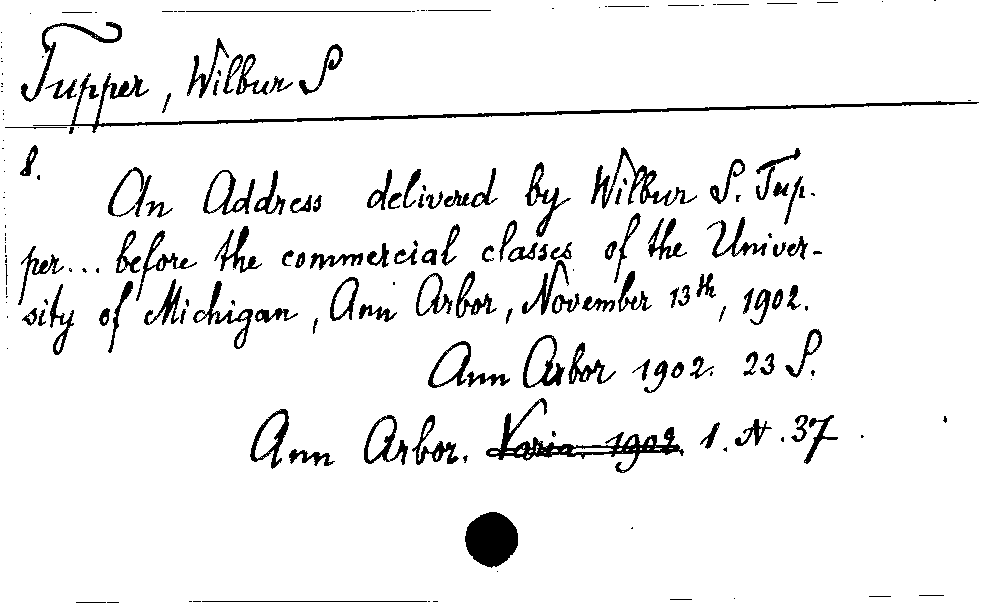 Tupper, Wilbur S
8.
An Address delivered by Wilbur S. Tup-
per... before the commercial classes of the Univer-
sity of Michigan, Ann Arbor, November 13th, 1902.
Ann Arbor 1902. 23 S.
Ann Arbor. Varia. 1902. 1. N. 37.